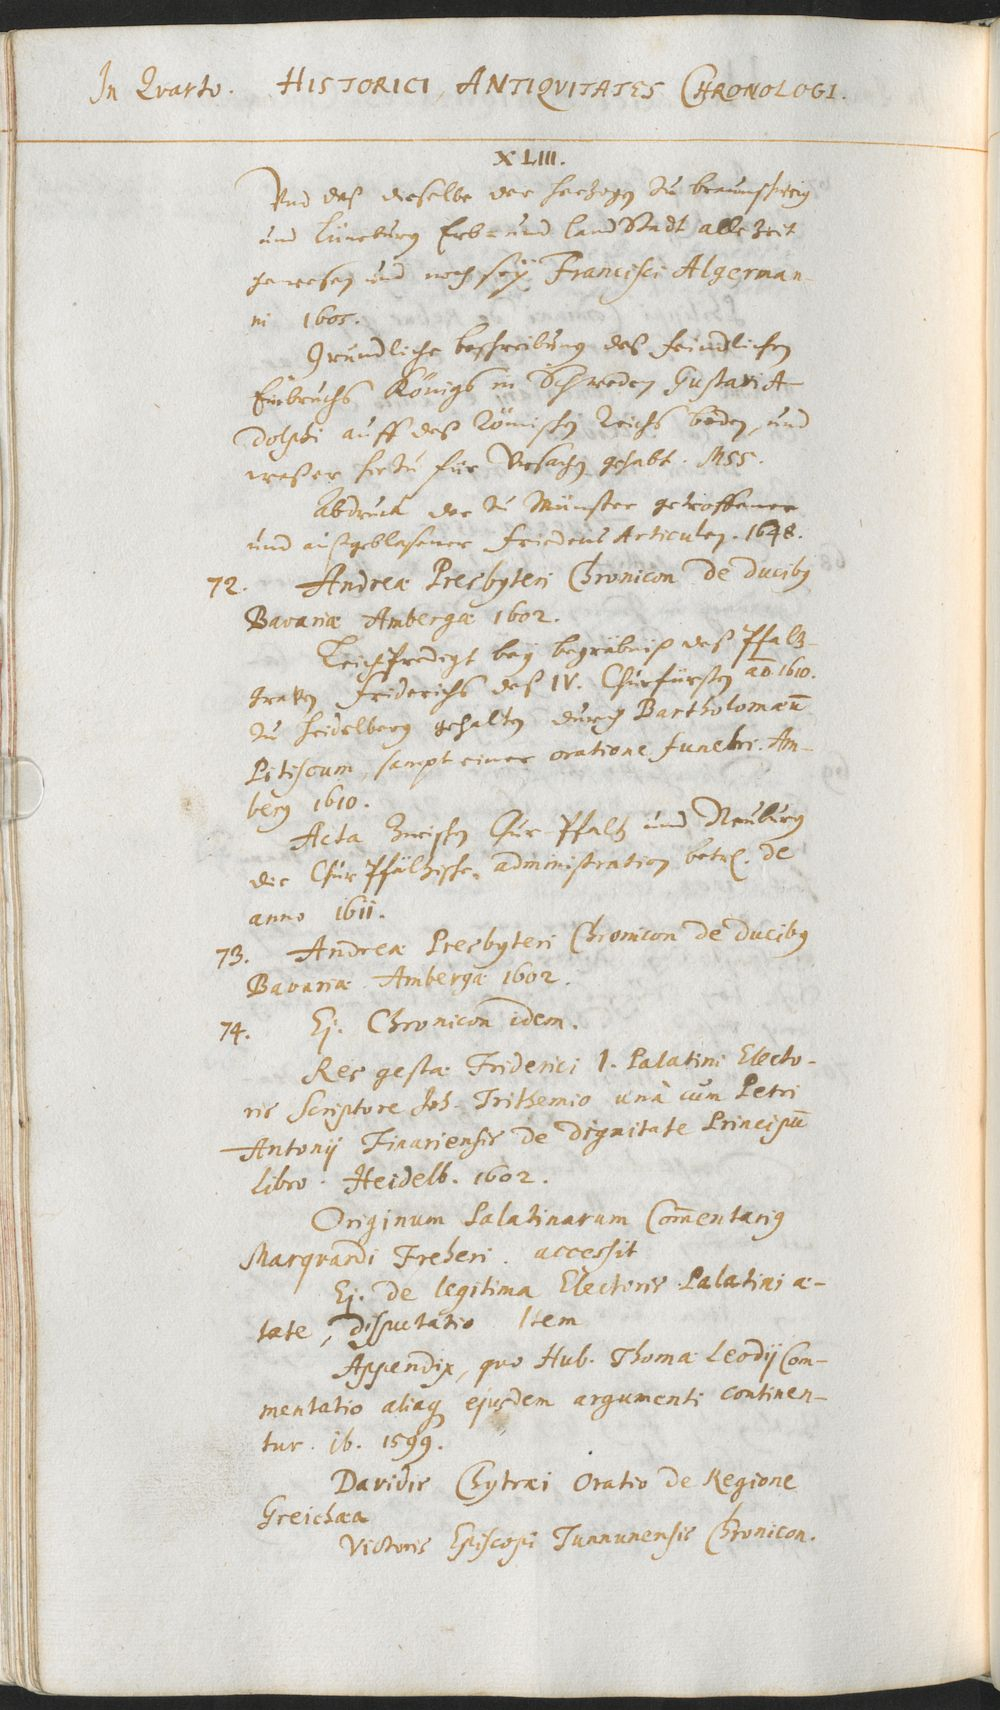 In Qvarto. HISTORICI, ANTIQVITATES CHRONOLOGI.
XLIII.
Vnd daß dieselbe der Herzogen zu braunschweig
und Lüneburg Erb- und Land Stadt alle Zeit
gewesen und noch seÿ. Francisci Algerman-
ni 1605.
Gründliche beschreibung deß feindlichen
Einbruchs Königs in Schweden Gustavi A-
dolphi auff deß Römischen Reichs boden, und
waß er hierzu für Vrsachen gehabt. MSS.
Abdruck der zu Münster getroffener
und außgeblasener Friedens Articulen. 1648.
72. Andreæ Presbyteri Chronicon de ducibꝰ
Bavariæ Ambergæ 1602.
Leichpredigt beÿ begräbniß deß Pfaltz-
graven Friderichs deß IV. Churfürsten aō. 1610.
zu Heidelberg gehalten durch Bartholomæū
Pitiscum, sampt einer oratione funebri. Am-
berg 1610.
Acta zwischen Chur-Pfaltz und Neuburg
die Chur Pfältzische administration betr. de
anno 1611.
73. Andreæ Presbyteri Chronicon de ducibꝰ
Bavariæ Ambergæ 1602.
74. Ej. Chronicon idem.
Res gestæ Friderici I. Palatini Electo-
ris Scriptore Joh. Trithemio unà cum Petri
Antonij Finariensis de dignitate Principū
libro. Heidelb. 1602.
Originum Palatinarum Com̄entariꝰ
Marqvardi Freheri. accessit
Ej. de legitima Electoris Palatini æ-
tate, disputatio Item
Appendix, quo Hub. Thomæ Leodij Com-
mentatio aliaq ejusdem argumenti continen-
tur. ib. 1599.
Davidis Chytræi Oratio de Regione
Greichæa
Victoris Episcopi Tunnunensis Chronicon.